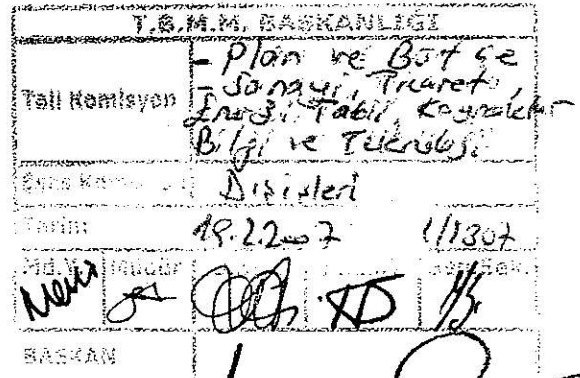 T.B.M.M. BAŞKANLIĞI
Tali Komisyon
- Plan ve Bütçe
- Sanayi, Ticaret,
Enerji, Tabii, Kaynaklar
Bilgi ve Teknoloji
Esas Dışişleri
Tarihi 19.2.2007 1/1307
Müdür
BAŞKAN